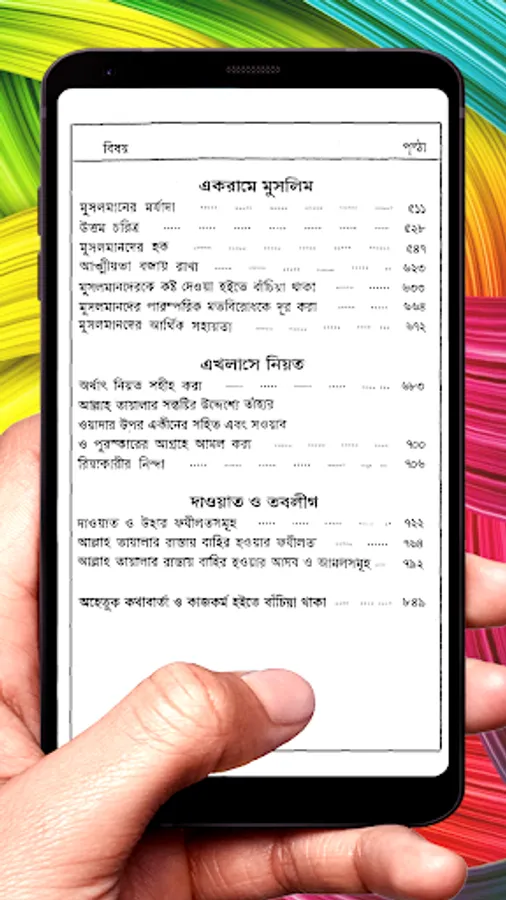 বিষয় পৃষ্ঠা
একরামে মুসলিম
মুসলমানের মর্যাদা ৫১১
উত্তম চরিত্র ৫২৮
মুসলমানদের হক ৫৪৭
আত্মীয়তা বজায় রাখা ৬২৩
মুসলমানদেরকে কষ্ট দেওয়া হইতে বাঁচিয়া থাকা ৬৩৩
মুসলমানদের পারস্পরিক মতবিরোধকে দূর করা ৬৬৪
মুসলমানদের আর্থিক সহায়তা ৬৭২
এখলাসে নিয়ত
অর্থাৎ নিয়ত সহীহ করা ৬৮৩
আল্লাহ তায়ালার সন্তুষ্টির উদ্দেশ্যে তাঁহার
ওয়াদার উপর একীনের সহিত এবং সওয়াব
ও পুরস্কারের আগ্রহে আমল করা ৭০০
রিয়াকারীর নিন্দা ৭০৬
দাওয়াত ও তবলীগ
দাওয়াত ও উহার ফযীলতসমূহ ৭২২
আল্লাহ তায়ালার রাস্তায় বাহির হওয়ার ফযীলত ৭৬৪
আল্লাহ তায়ালার রাস্তায় বাহির হওয়ার আদব ও আমলসমূহ ৭৯২
অহেতুক কথাবার্তা ও কাজকর্ম হইতে বাঁচিয়া থাকা ৮৪৯